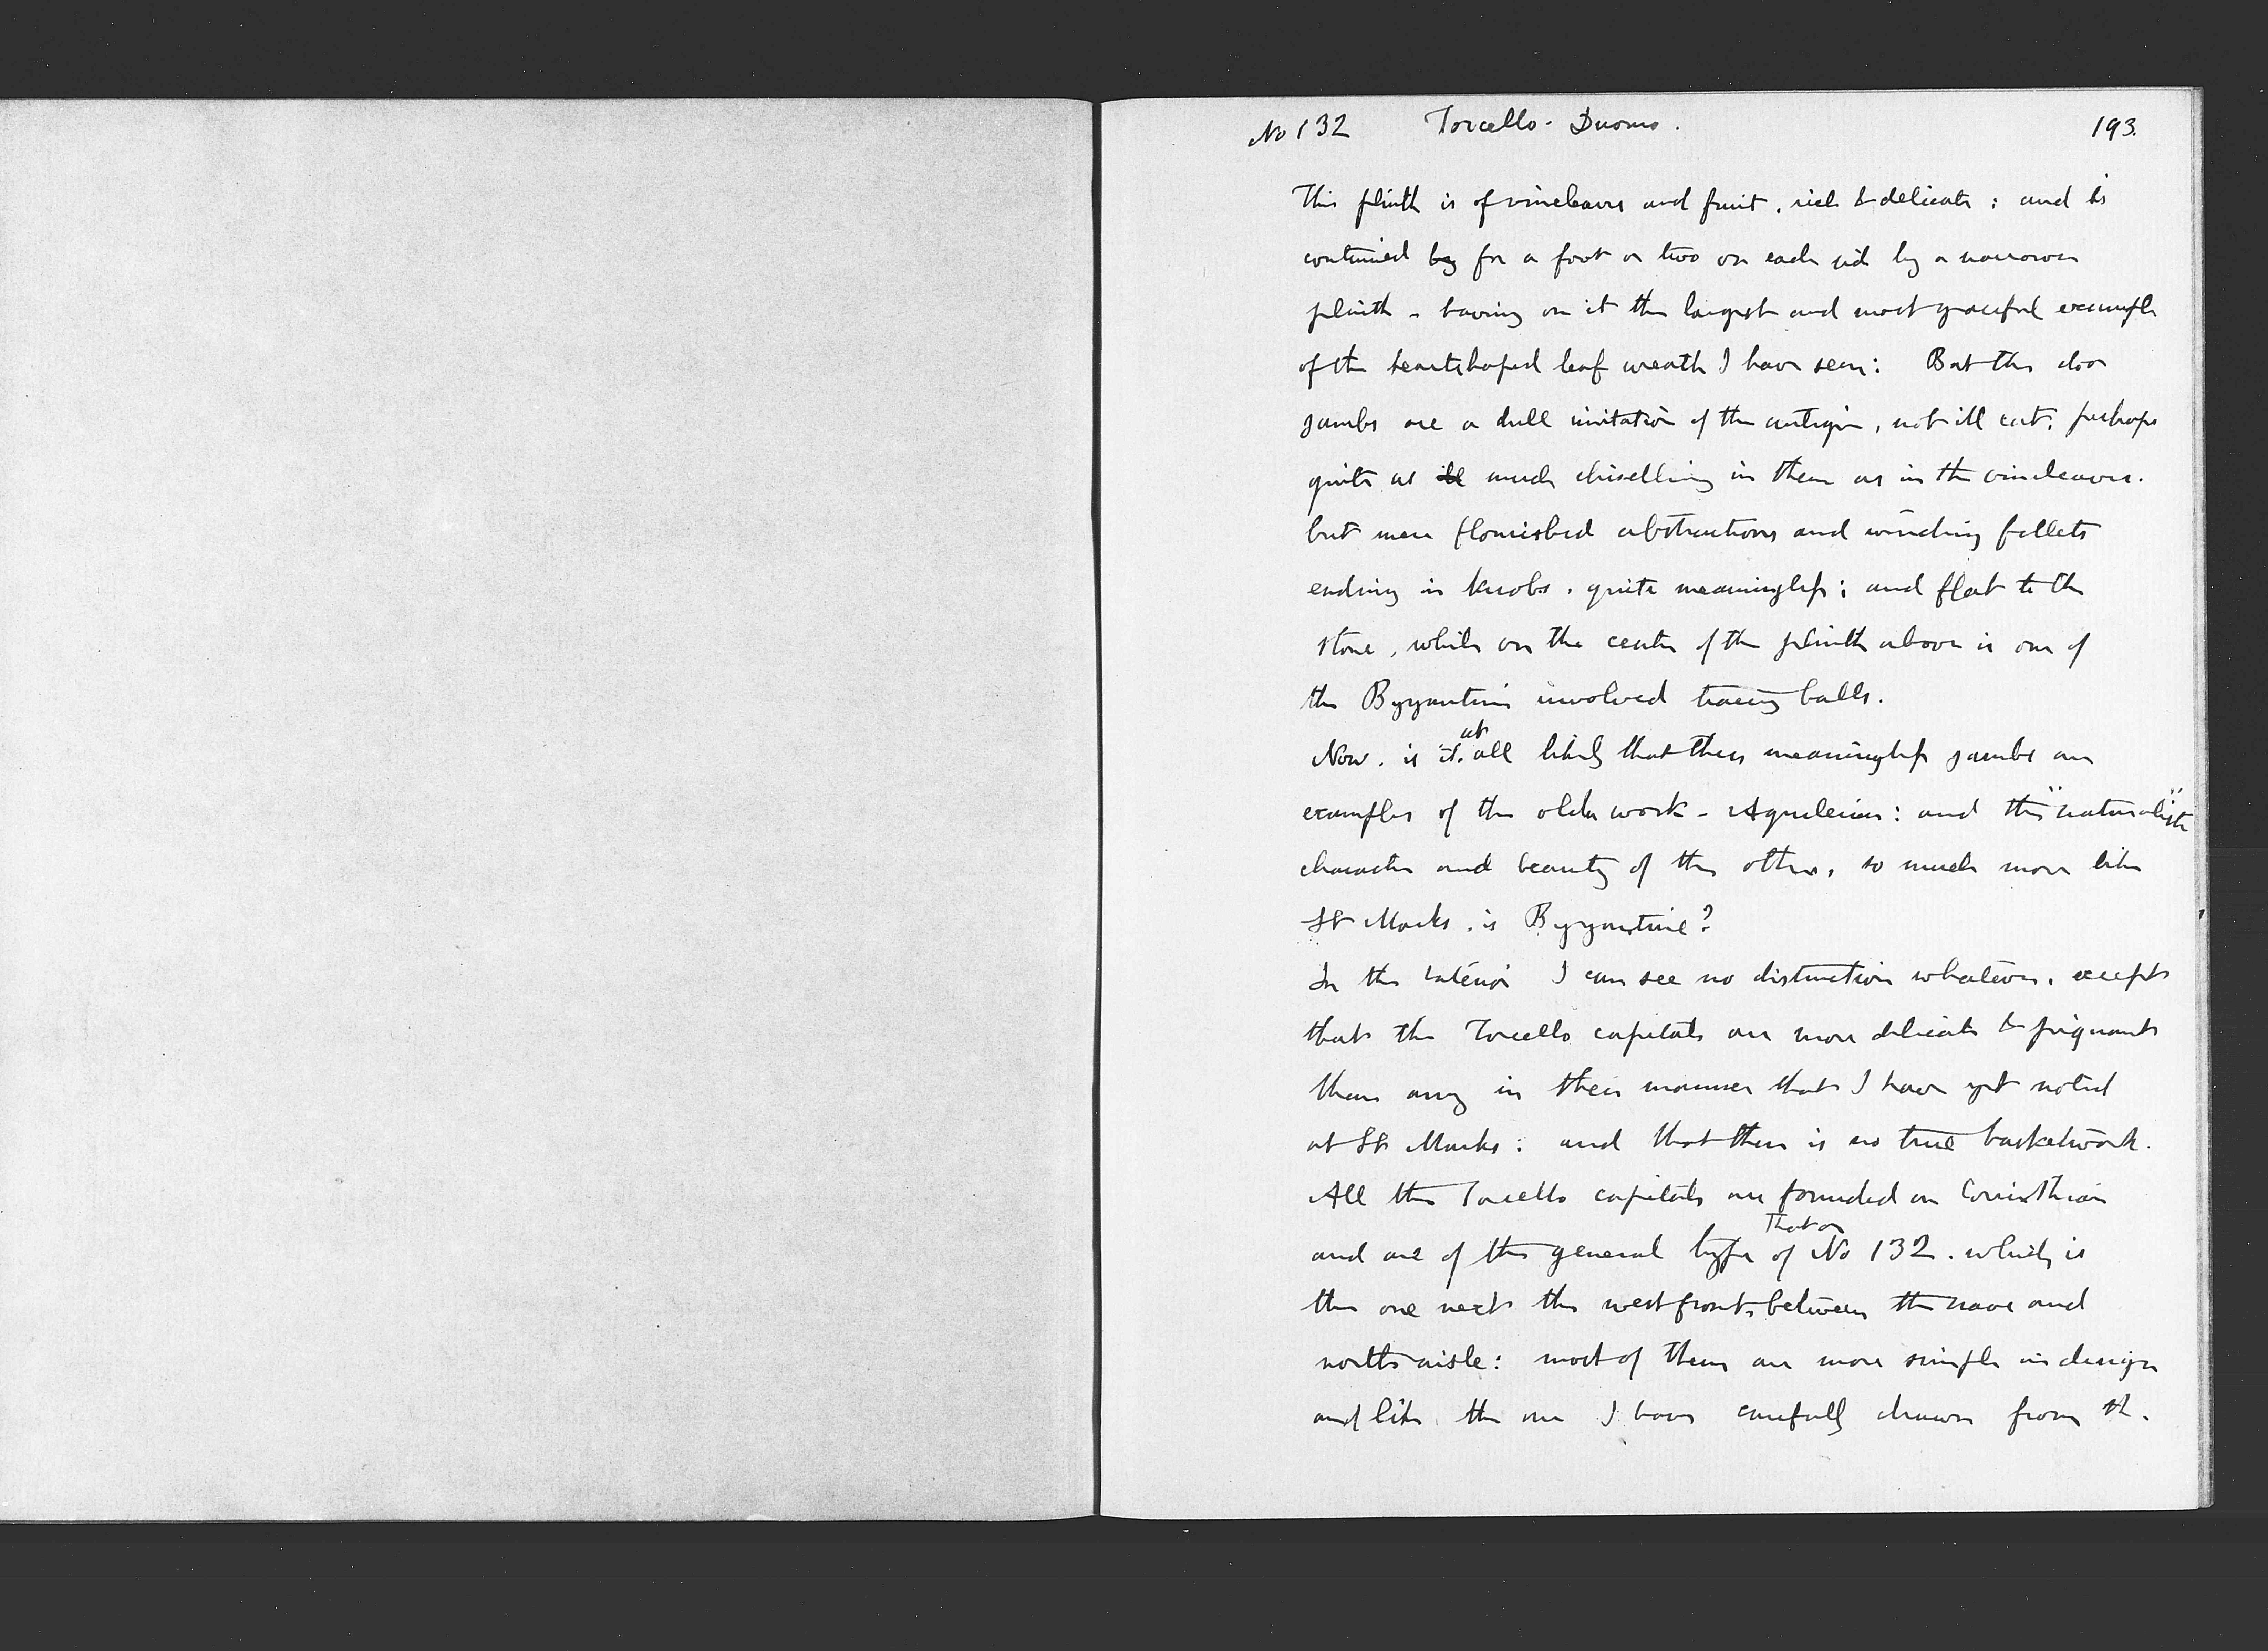 No 132 Torcello - Duomo. 193.
This plinth is of vineleaves and fruit, rich & delicate: and is
continued by for a foot or two on each side by a narrower
plinth - having on it the largest and most graceful example
of the heartshaped leaf wreath I have seen: But the door
jambs are a dull imitation of the antique, not ill cut, perhaps
quite as ill much chiselling in them as in the vineleaves.
but mere flourished abstractions and winding fillets
ending in knobs, quite meaningless; and flat to the
stone, while on the center of the plinth above is one of
the Byzantine involved tracery balls.
Now, is it at all likely that these meaningless jambs are
examples of the older work - Aquileian: and the "naturalistic"
character and beauty of the other, so much more like
St Marks, is Byzantine?
In the interior I can see no distinction whatever, except
that the Torcello capitals are more delicate & piquant
than any in their manner that I have yet noted
at St Marks: and that there is no true basketwork.
All the Torcello capitals are founded on Corinthian
and are of the general type of That on No 132. which is
the one next the west front, between the nave and
north aisle: most of them are more simple in design
and like the one I have carefully drawn from st.